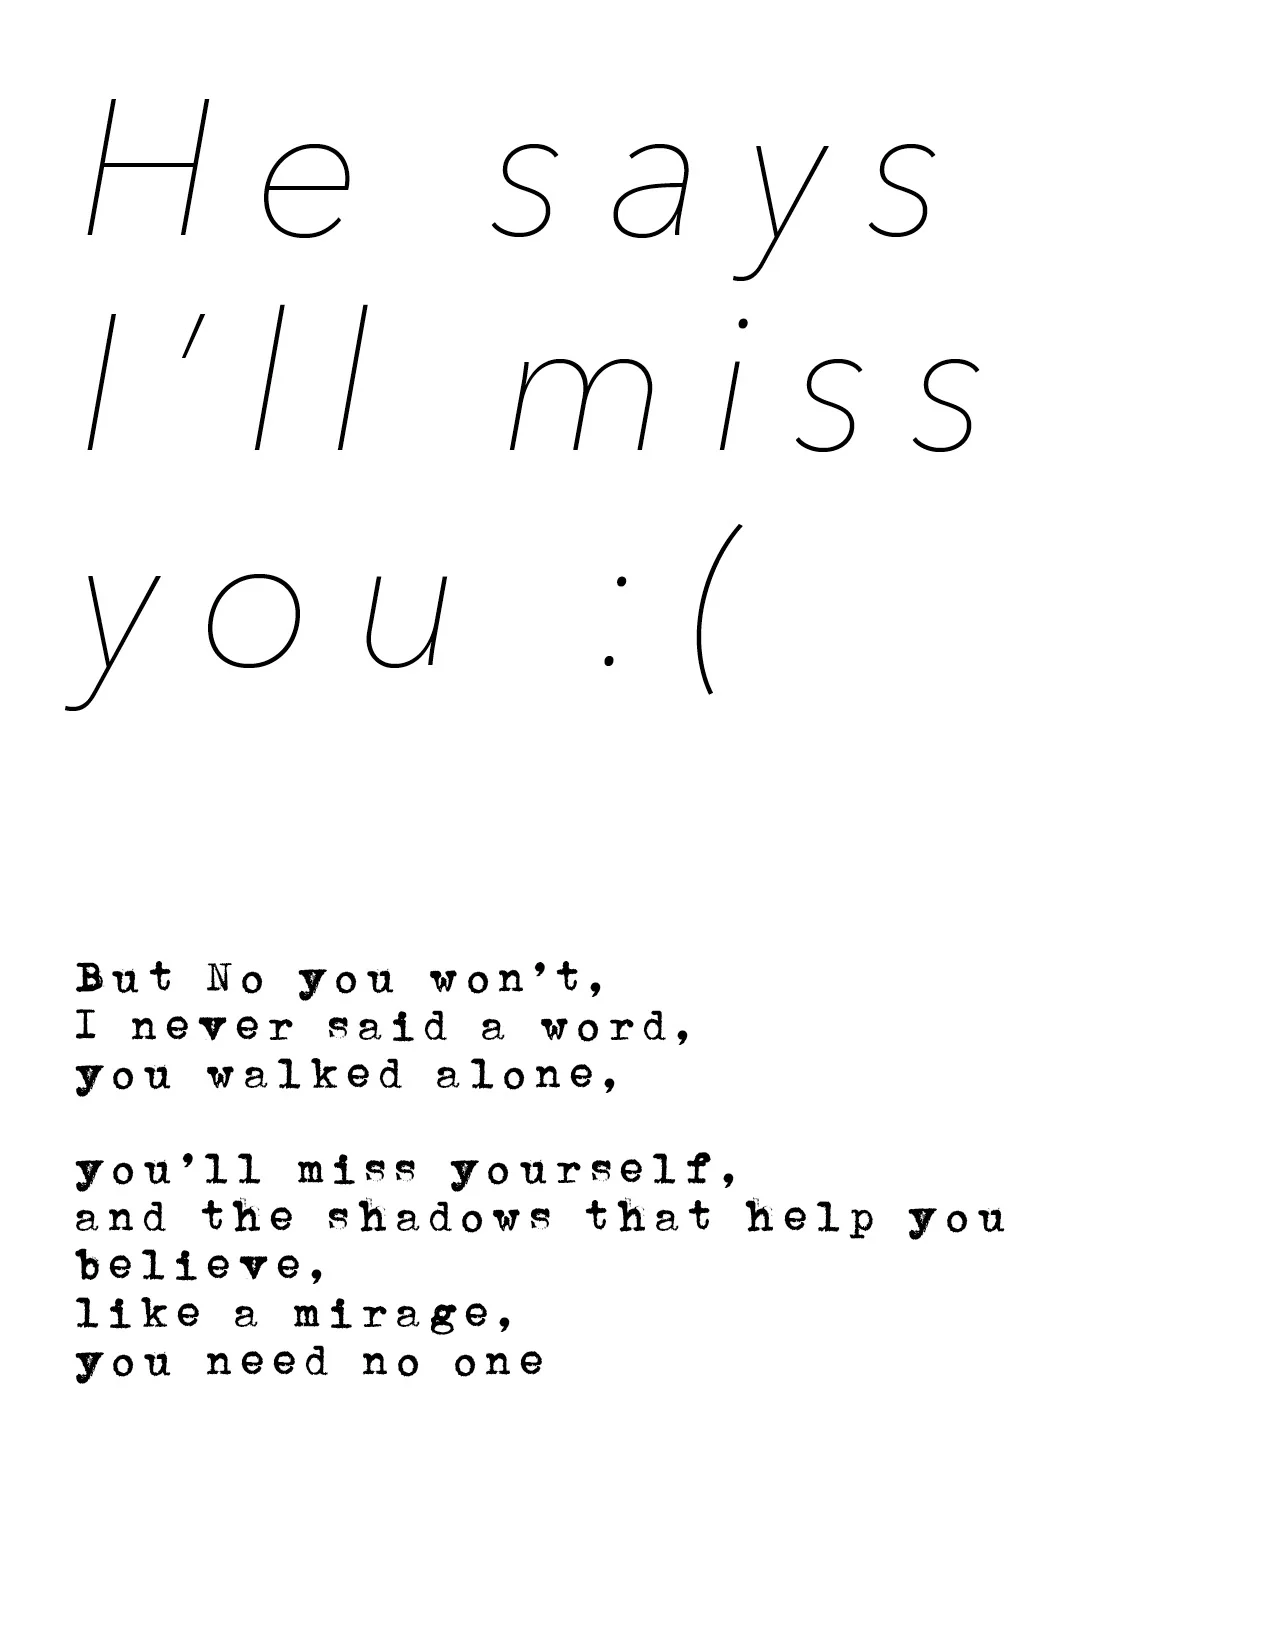 He says
I'll miss
you :(
But No you won't,
I never said a word,
you walked alone,
you'll miss yourself,
and the shadows that help you
believe,
like a mirage,
you need no one